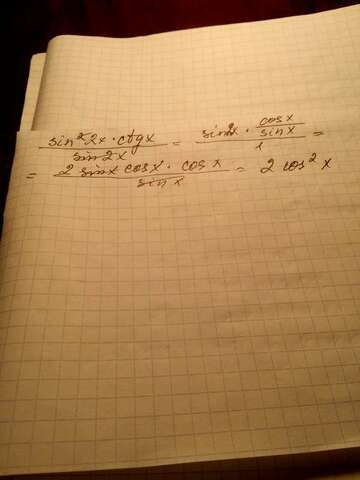 sin²2x · ctgx / sin2x = sin2x · cosx/sinx / 1 =
= 2 sinx cosx · cosx / sinx = 2 cos²x